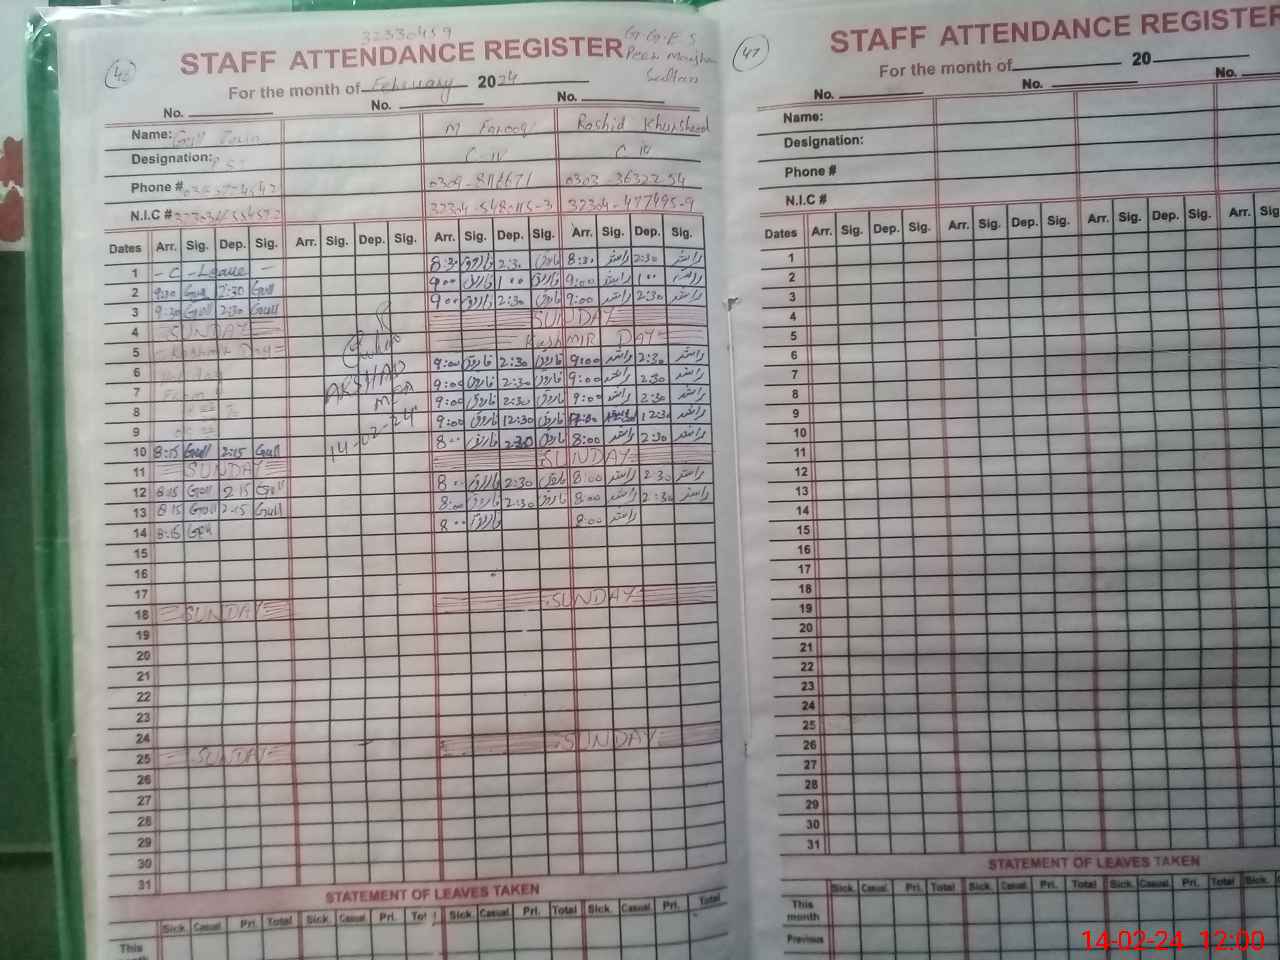 32330459
(46) STAFF ATTENDANCE REGISTER G.G.E.S
For the month of February 2024
No. No. No.
Name: Gull M Farooq Rashid Khursheed
Designation: PST C-IV C IV
Phone # 0304-8116671 0303-3632254
N.I.C # 32304-5480115-3 32304-477495-9
Dates Arr. Sig. Dep. Sig. Arr. Sig. Dep. Sig. Arr. Sig. Dep. Sig. Arr. Sig. Dep. Sig.
1 - C - Leave - 8:30 فاروق 2:30 فاروق 8:30 راشد 2:30 راشد
2 9:00 Gull 2:30 Gull 9:00 فاروق 1:00 فاروق 9:00 راشد 1:00 راشد
3 9:30 Gull 2:30 Gull 9:00 فاروق 2:30 فاروق 9:00 راشد 2:30 راشد
4 SUNDAY SUNDAY
5 Kashmir Day Kashmir DAY
6 9:00 فاروق 2:30 فاروق 9:00 راشد 2:30 راشد
7 From 9:00 فاروق 2:30 فاروق 9:00 راشد 2:30 راشد
8 To 9:00 فاروق 2:30 فاروق 9:00 راشد 2:30 راشد
9 9:00 فاروق 12:30 فاروق 12:30 راشد
10 8:15 Gull 2:15 Gull 8:00 فاروق 2:30 فاروق 8:00 راشد 2:30 راشد
11 SUNDAY SUNDAY
12 8:15 Gull 2:15 Gull 8:00 فاروق 2:30 فاروق 8:00 راشد 2:30 راشد
13 8:15 Gull 2:15 Gull 8:00 فاروق 2:30 فاروق 8:00 راشد 2:30 راشد
14 8:15 Gull 8:00 فاروق 8:00 راشد
ARSHAD
MEA
14-02-24
15
16
17
18 SUNDAY SUNDAY
19
20
21
22
23
24
25 SUNDAY SUNDAY
26
27
28
29
30
31
STATEMENT OF LEAVES TAKEN
Sick. Casual. Pri. Total Sick. Casual. Pri. Tot Sick. Casual. Pri. Total Sick. Casual. Pri. Total
This
(47) STAFF ATTENDANCE REGISTER
For the month of 20
No. No. No.
Name:
Designation:
Phone #
N.I.C #
Dates Arr. Sig. Dep. Sig. Arr. Sig. Dep. Sig. Arr. Sig. Dep. Sig. Arr. Sig.
1
2
3
4
5
6
7
8
9
10
11
12
13
14
15
16
17
18
19
20
21
22
23
24
25
26
27
28
29
30
31
STATEMENT OF LEAVES TAKEN
Sick. Casual. Pri. Total Sick. Casual. Pri. Total Sick. Casual. Pri. Total Sick.
This
month
Previous
14-02-24 12:00